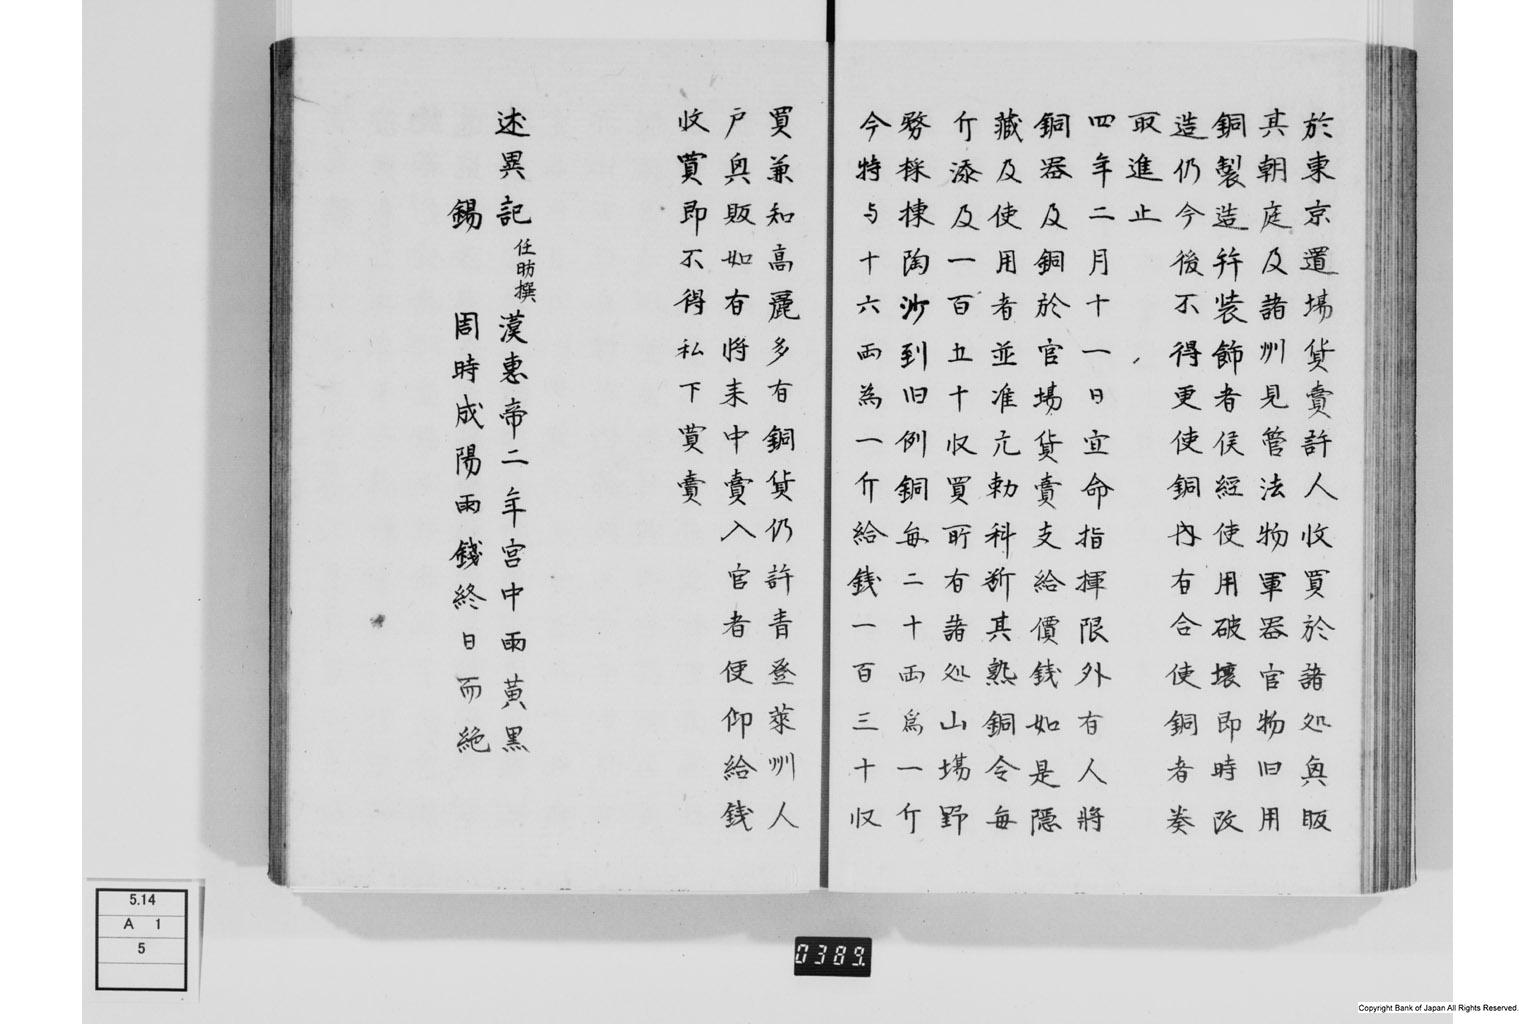 於東京置場貨賣許人收買於諸処與販
其朝庭及諸州見管法物軍器官物旧用
銅製造幷裝飾者俟經使用破壞即時改
造仍今後不得更使銅內有合使銅者奏
取進止
四年二月十一日宜命指揮限外有人將
銅器及銅於官場貨賣支給價錢如是隱
藏及使用者並准元勅科斷其熟銅令每
斤添及一百五十收買所有諸処山場野
務採揀陶沙到旧例銅每二十両爲一斤
今特与十六両為一斤給錢一百三十収
買兼知高麗多有銅貨仍許青登萊州人
戸與販如有將来中賣入官者便仰給錢
收買即不得私下買賣
述異記 任昉撰 漢惠帝二年宮中雨黃黑
錫 周時咸陽雨錢終日而絕
5.14
A 1
5
0389.
Copyright Bank of Japan All Rights Reserved.